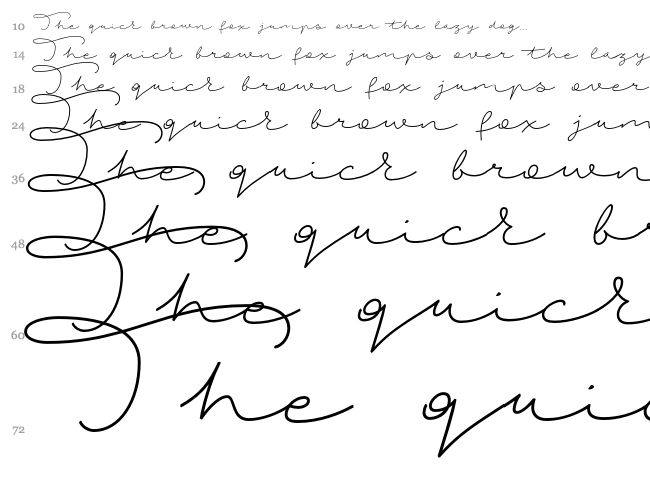 10 The quick brown fox jumps over the lazy dog...
14 The quick brown fox jumps over the lazy
18 The quick brown fox jumps over
24 The quick brown fox jum
36 The quick brown
48 The quick br
60 The quick
72 The qui